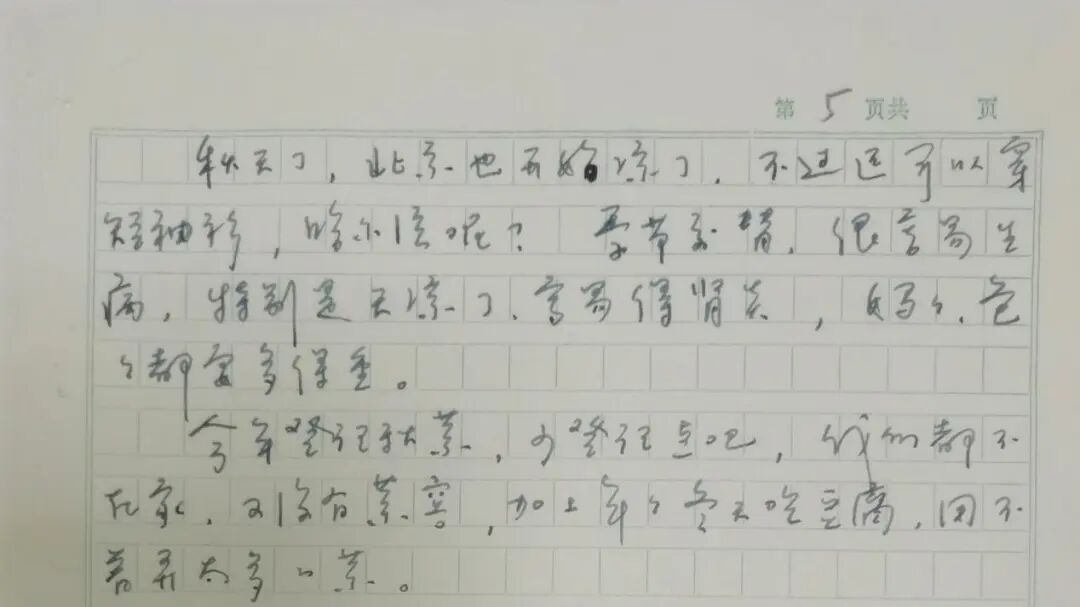 第 5 页共 页
秋天了，北京也开始凉了．不过还可以穿
短袖衫，哈尔滨呢？季节交替．很容易生
病，特别是天凉了．容易得肾炎，妈妈．爸
爸都要多保重。
今年腌酸菜，少腌点吧，我们都不
在家．又没有菜窖，加上年年冬天吃豆腐．用不
着弄太多的菜。